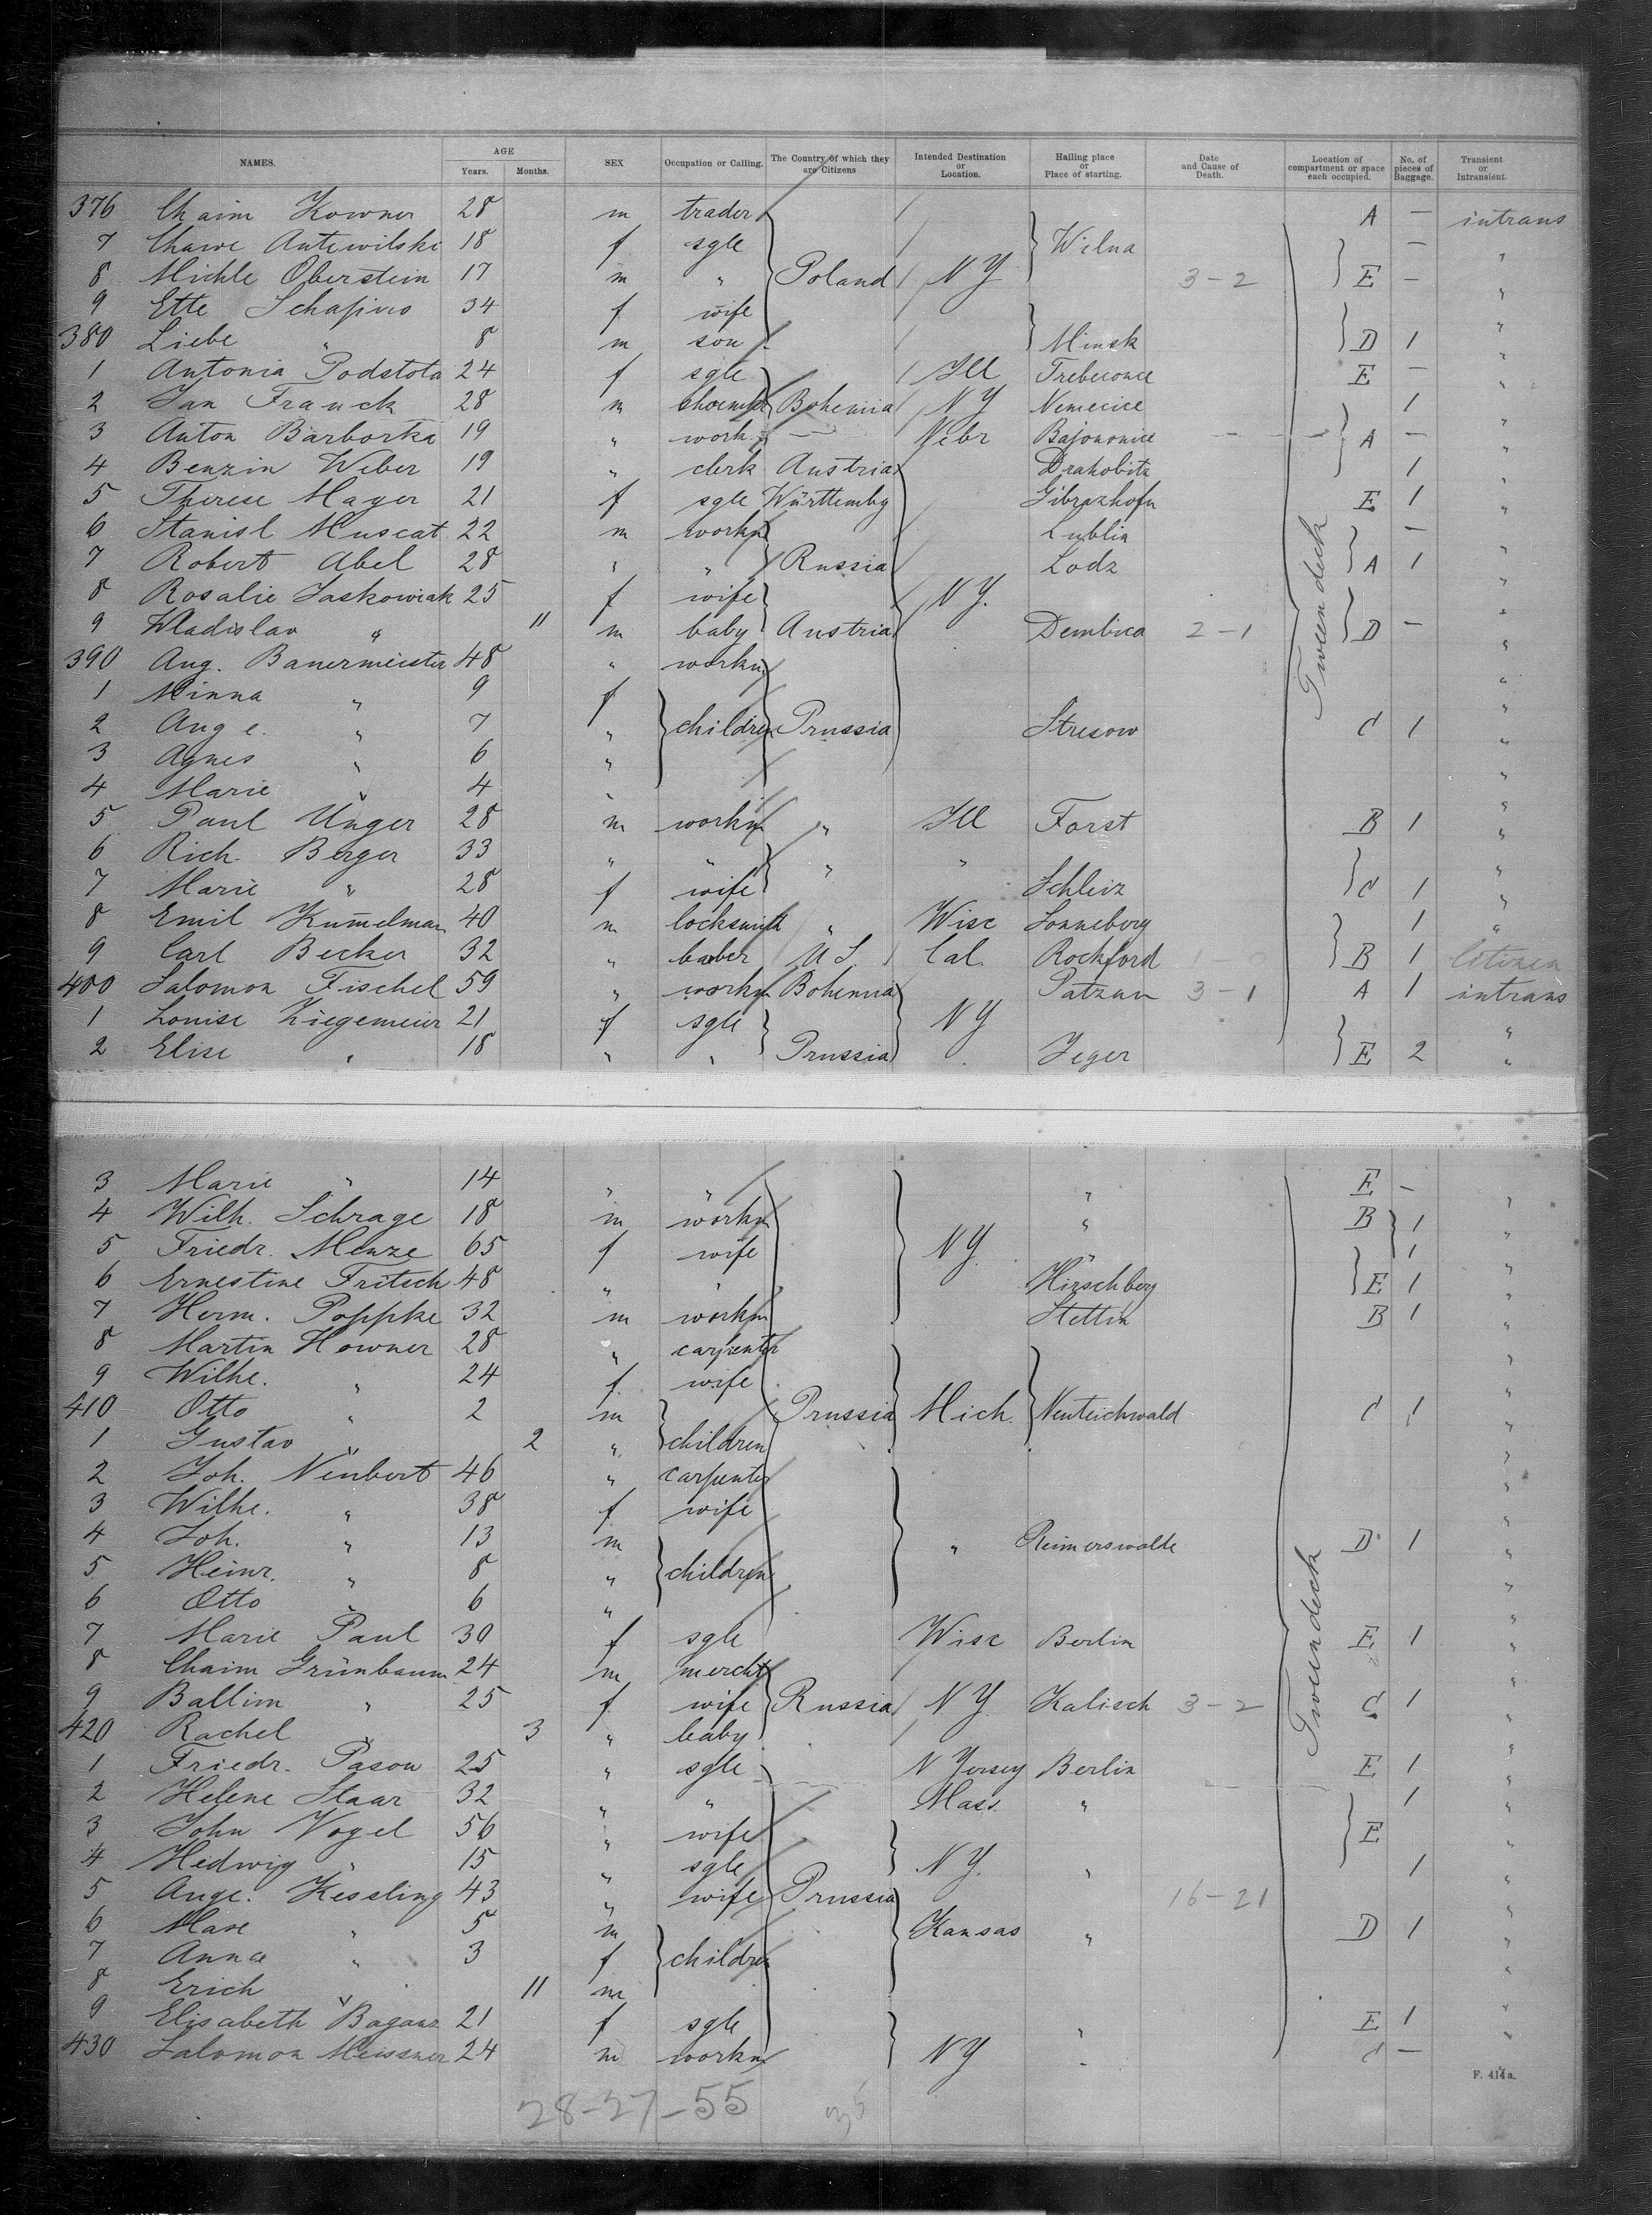 NAMES. AGE SEX Occupation or Calling. The Country of which they are Citizens Intended Destination or Location. Hailing place or Place of starting. Date and Cause of Death. Location of compartment or space each occupied. No. of pieces of Baggage. Transient or Intransient.
Years. Months.
376 Chaim Kowner 28 m trader A — intrans
7 Chawe Antewilski 18 f sgle Wilna — "
8 Michle Oberstein 17 m " Poland NY 3-2 E — "
9 Ette Schapiro 34 f wife "
380 Liebe " 8 m son Minsk D 1 "
1 Antonia Podstota 24 f sgle Ill E — "
2 Jan Franck 28 m Bohemia NY Nemecice 1 "
3 Anton Barborka 19 " work — Nebr A — "
4 Benzin Weber 19 " clerk Austria 1 "
5 Therese Mayer 21 f sgle Württembg E 1 "
6 Stanisl Muscat 22 m workm Lublin — "
7 Robert Abel 28 " " Russia Lodz A 1 "
8 Rosalie Jaskowiak 25 f wife NY. "
9 Wladislav " 11 m baby Austria Dembica 2-1 D — "
390 Aug. Bauermeister 48 " workm "
1 Minna " 9 f "
2 Auge. " 7 " children Prussia Stresow C 1 "
3 Agnes " 6 " "
4 Marie " 4 " "
5 Paul Unger 28 m workm " Ill Forst B 1 "
6 Rich. Berger 33 " " " " "
7 Marie " 28 f wife Schleiz C 1 "
8 Emil Kum̄elman 40 m locksmith " Wisc Sonneberg 1 "
9 Carl Becker 32 " baber U S. Cal. Rockford 1-0 B 1 citizen
400 Salomon Fischel 59 " workm Bohemia Patzau 3-1 A 1 intrans
1 Louise Ziegemeier 21 f sgle NY "
2 Elise " 18 " " Prussia Jeger E 2 "
3 Marie " 14 " " " E — "
4 Wilh. Schrage 18 m workm " B 1 "
5 Friedr. Menze 65 f wife NY. " 1 "
6 Ernestine Fritsch 48 " " Hirschberg E 1 "
7 Herm. Poppke 32 m workm Stettin B 1 "
8 Martin Howner 28 " carpenter "
9 Wilhe. " 24 f wife "
410 Otto " 2 m Prussia Mich. Neuteichwald C 1 "
1 Gustav " 2 " children "
2 Joh. Neubert 46 " carpenter "
3 Wilhe. " 38 f wife "
4 Joh. " 13 m " Reimerswalde D 1 "
5 Heinr. " 8 " children "
6 Otto " 6 " "
7 Marie Paul 30 f sgle Wisc Berlin E 1 "
8 Chaim Grünbaum 24 m mercht "
9 Ballim " 25 f wife Russia NY. Kalisch 3-2 C 1 "
420 Rachel " 3 " baby "
1 Friedr. Pason 25 " sgle N Yersey Berlin E 1 "
2 Helene Staar 32 " " Mass. " 1 "
3 John Vogel 56 " wife E "
4 Hedwig " 15 " sgle NY. " 1 "
5 Auge. Kessling 43 " wife Prussia 16-21 "
6 Maxe " 5 m Kansas " D 1 "
7 Anna " 3 f children "
8 Erich " 11 m "
9 Elisabeth Baganz 21 f sgle " E 1 "
430 Salomon Meissner 24 m workm NY " C — "
Tweendeck
Tweendeck
F. 414a.
28-27-55